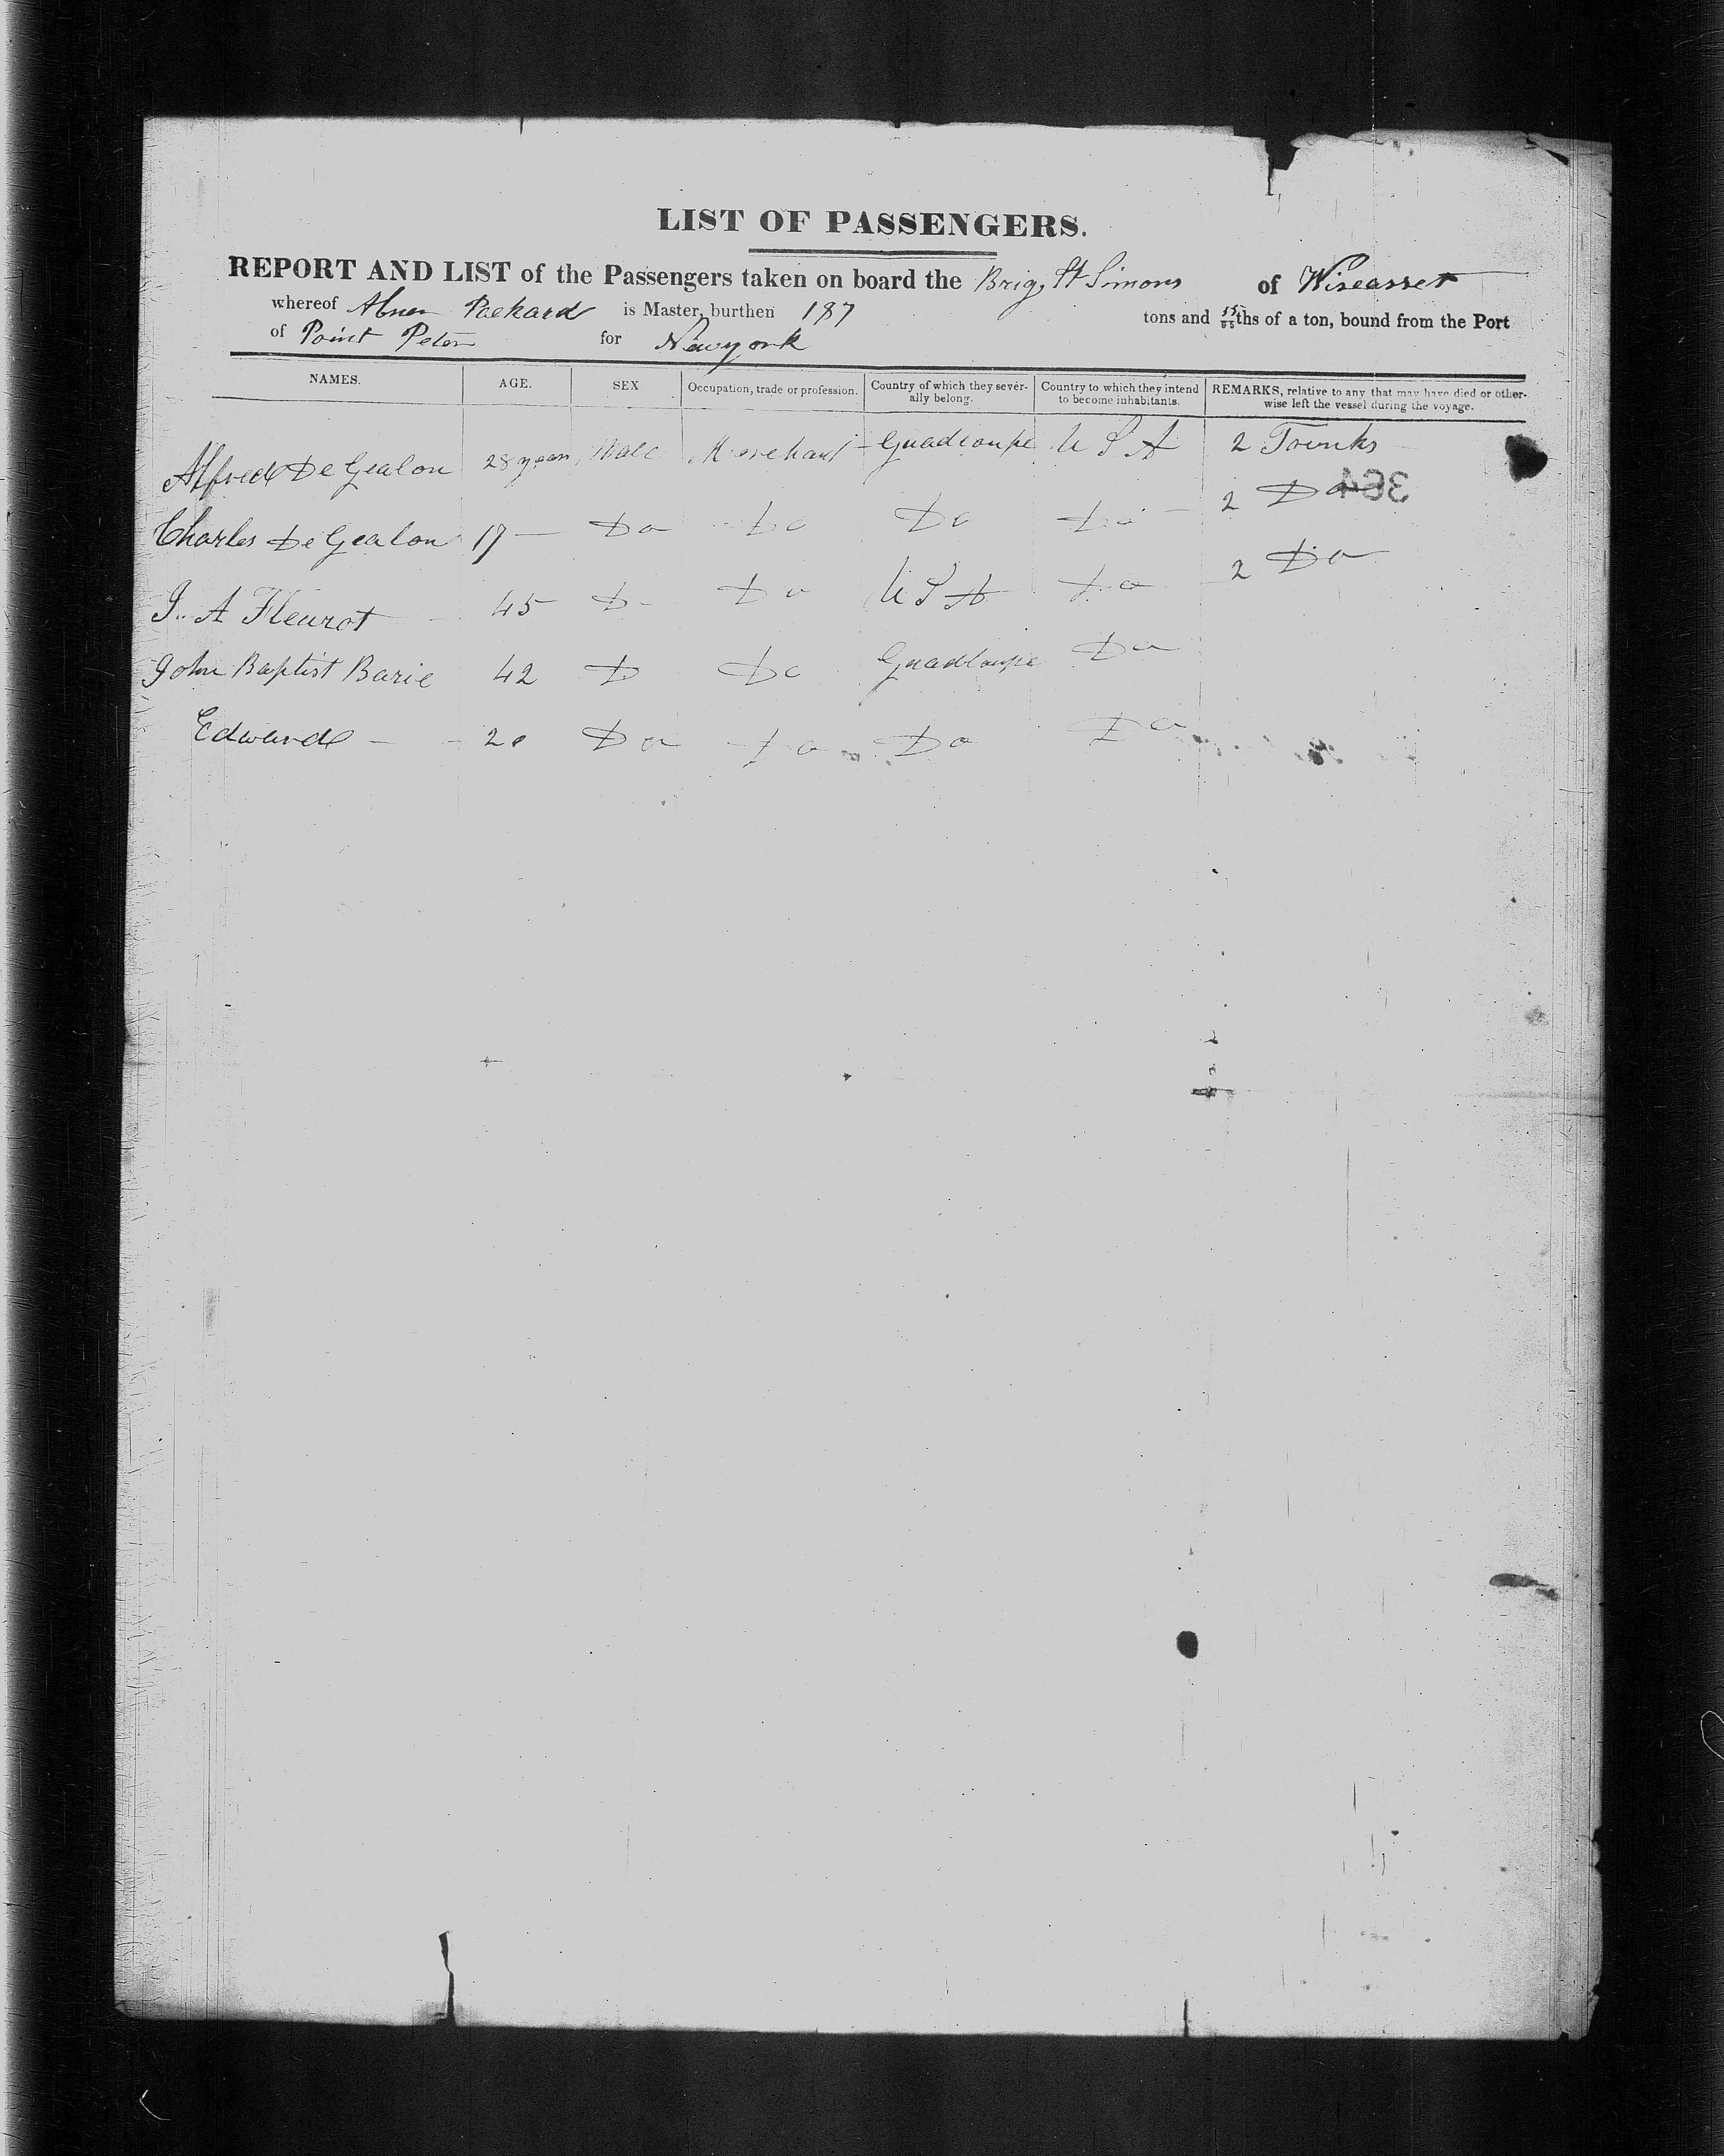 LIST OF PASSENGERS.
REPORT AND LIST of the Passengers taken on board the Brig St Simons of Wiscasset
whereof Abner Packard is Master, burthen 187 tons and ths of a ton, bound from the Port
of Point Peter for Newyork
NAMES. AGE. SEX Occupation, trade or profession. Country of which they sever-ally belong. Country to which they intend to become inhabitants. REMARKS, relative to any that may have died or other-wise left the vessel during the voyage.
Alfred De Gealon 28 years Male Merchant Guadloupe U S A 2 Trunks
364
Charles De Gealon 17 — Do Do Do Do 2 Do
J. A Fleurot 45 D- Do U S A Do 2 Do
John Baptist Barie 42 D Do Guadloupe Do
Edward — 20 Do Do Do Do